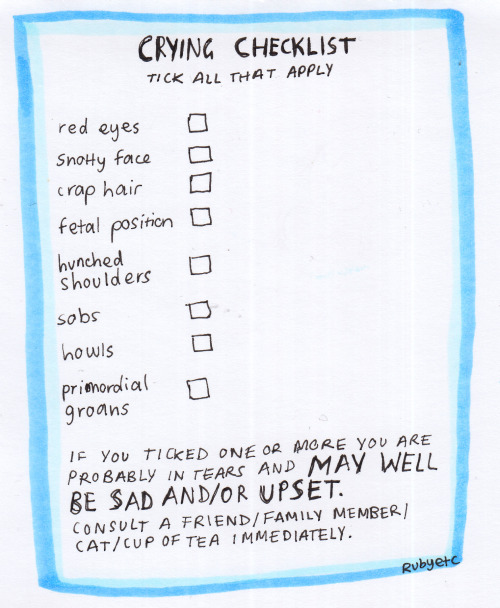 CRYING CHECKLIST
TICK ALL THAT APPLY
red eyes
snotty face
crap hair
fetal position
hunched
shoulders
sobs
howls
primordial
groans
IF YOU TICKED ONE OR MORE YOU ARE
PROBABLY IN TEARS AND MAY WELL
BE SAD AND/OR UPSET.
CONSULT A FRIEND/FAMILY MEMBER/
CAT/CUP OF TEA IMMEDIATELY.
Rubyetc